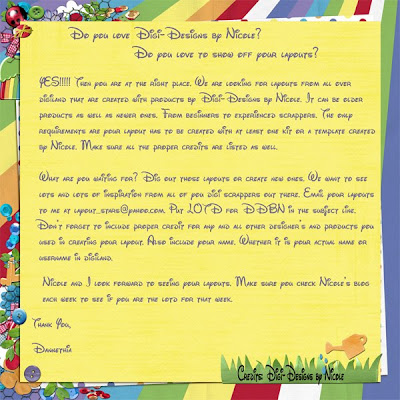 Do you love Digi-Designs by Nicole?
Do you love to show off your layouts?
YES!!!!! Then you are at the right place. We are looking for layouts from all over
digiland that are created with products by Digi-Designs by Nicole. It can be older
products as well as newer ones. From beginners to experienced scrappers. The only
requirements are your layout has to be created with at least one kit or a template created
by Nicole. Make sure all the proper credits are listed as well.
What are you waiting for? Dig out those layouts or create new ones. We want to see
lots and lots of inspiration from all of you digi scrappers out there. Email your layouts
to me at layout_stars@yahoo.com. Put LOTD for DDBN in the subject line.
Don't forget to include proper credit for any and all other designer's and products you
used in creating your layout. Also include your name. Whether it is your actual name or
username in digiland.
Nicole and I look forward to seeing your layouts. Make sure you check Nicole's blog
each week to see if you are the lotd for that week.
Thank You,
Dannethia
Credits: Digi-Designs by Nicole